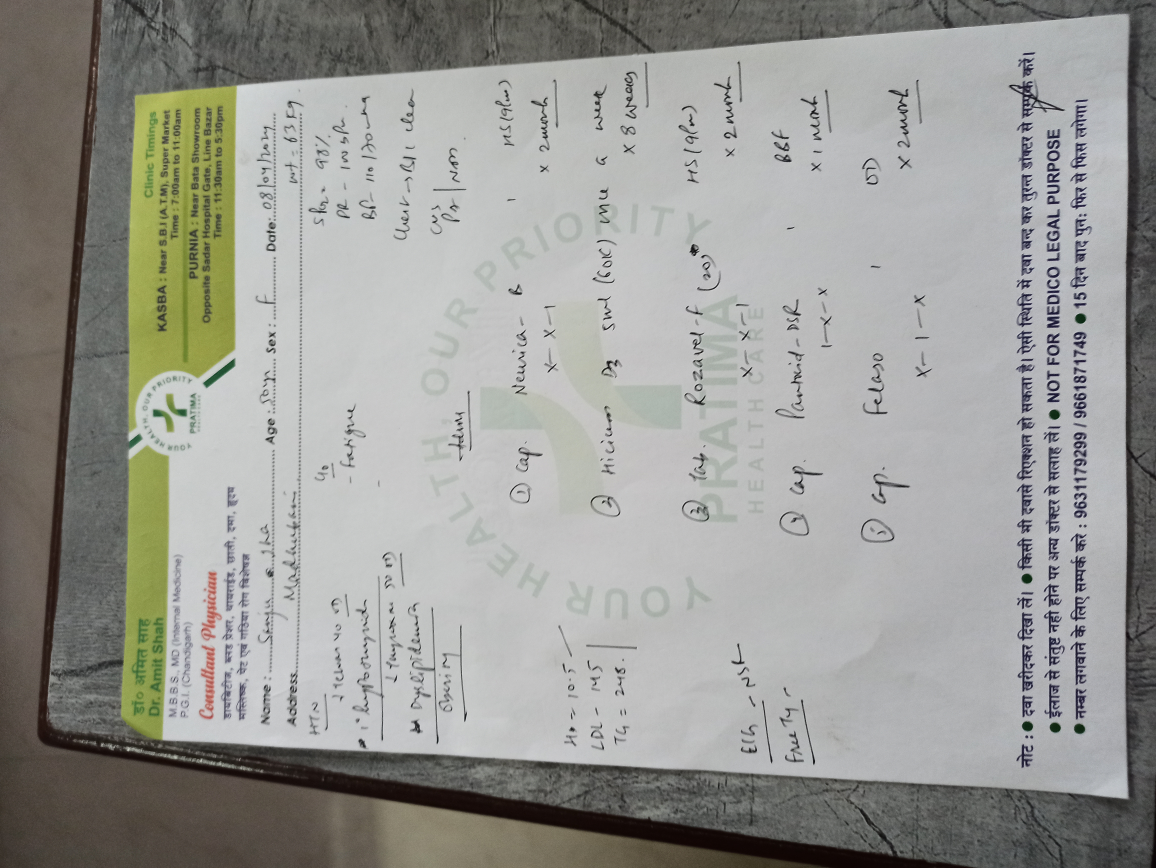 डा० अमित साह
Dr. Amit Shah
M.B.B.S., MD (Internal Medicine)
P.G.I. (Chandigarh)
Consultant Physician
डायबिटीज, ब्लड प्रेशर, थायराईड, छाती, दमा, हृदय
मस्तिष्क, पेट एवं गठिया रोग विशेषज्ञ
YOUR HEALTH, OUR PRIORITY
PRATIMA
Clinic Timings
KASBA : Near S.B.I (A.T.M), Super Market
Time : 7:00am to 11:00am
PURNIA : Near Bata Showroom
Opposite Sadar Hospital Gate, Line Bazar
Time : 11:30am to 5:30pm
Name : Sanju Jha Age : 50yr Sex : F Date: 08/04/2024
Address Madhubani WT - 63 Kg
HTN
↓ 40 OD
hypothyroid
↓ 50 OD
Dyslipidemia
Obesity
C/o
- Fatigue
SPO2 = 98%
PR -
BP - 110/70 mmHg
Chest → B/L clear
CVS
P/A | NAD
① Cap. Neurica - B 1 HS (9pm)
x - x - 1 x 2 month
② D3 Swl (60K) once a week
x 8 weeks
③ Tab. Rozavel-F (20) HS (9pm)
x - x - 1 x 2 month
④ Cap. Pantoid-DSR 1 BBF
1 - x - x x 1 month
⑤ Cap. Felaso 1 OD
x - 1 - x x 2 month
Hb - 10.5
LDL - 145
TG = 248
ECG - NSR
Free T4 -
YOUR HEALTH, OUR PRIORITY
PRATIMA
HEALTH CARE
नोट : ● दवा खरीदकर दिखा लें। ● किसी भी दवासे रिएक्शन हो सकता है। ऐसी स्थिति में दवा बन्द कर तुरन्त डॉक्टर से सम्पर्क करें।
● ईलाज से संतुष्ट नही होने पर अन्य डॉक्टर से सलाह लें। ● NOT FOR MEDICO LEGAL PURPOSE
● नम्बर लगवाने के लिए सम्पर्क करे : 9631179299 / 9661871749 ● 15 दिन बाद पुन: फिर से फिस लगेगा।